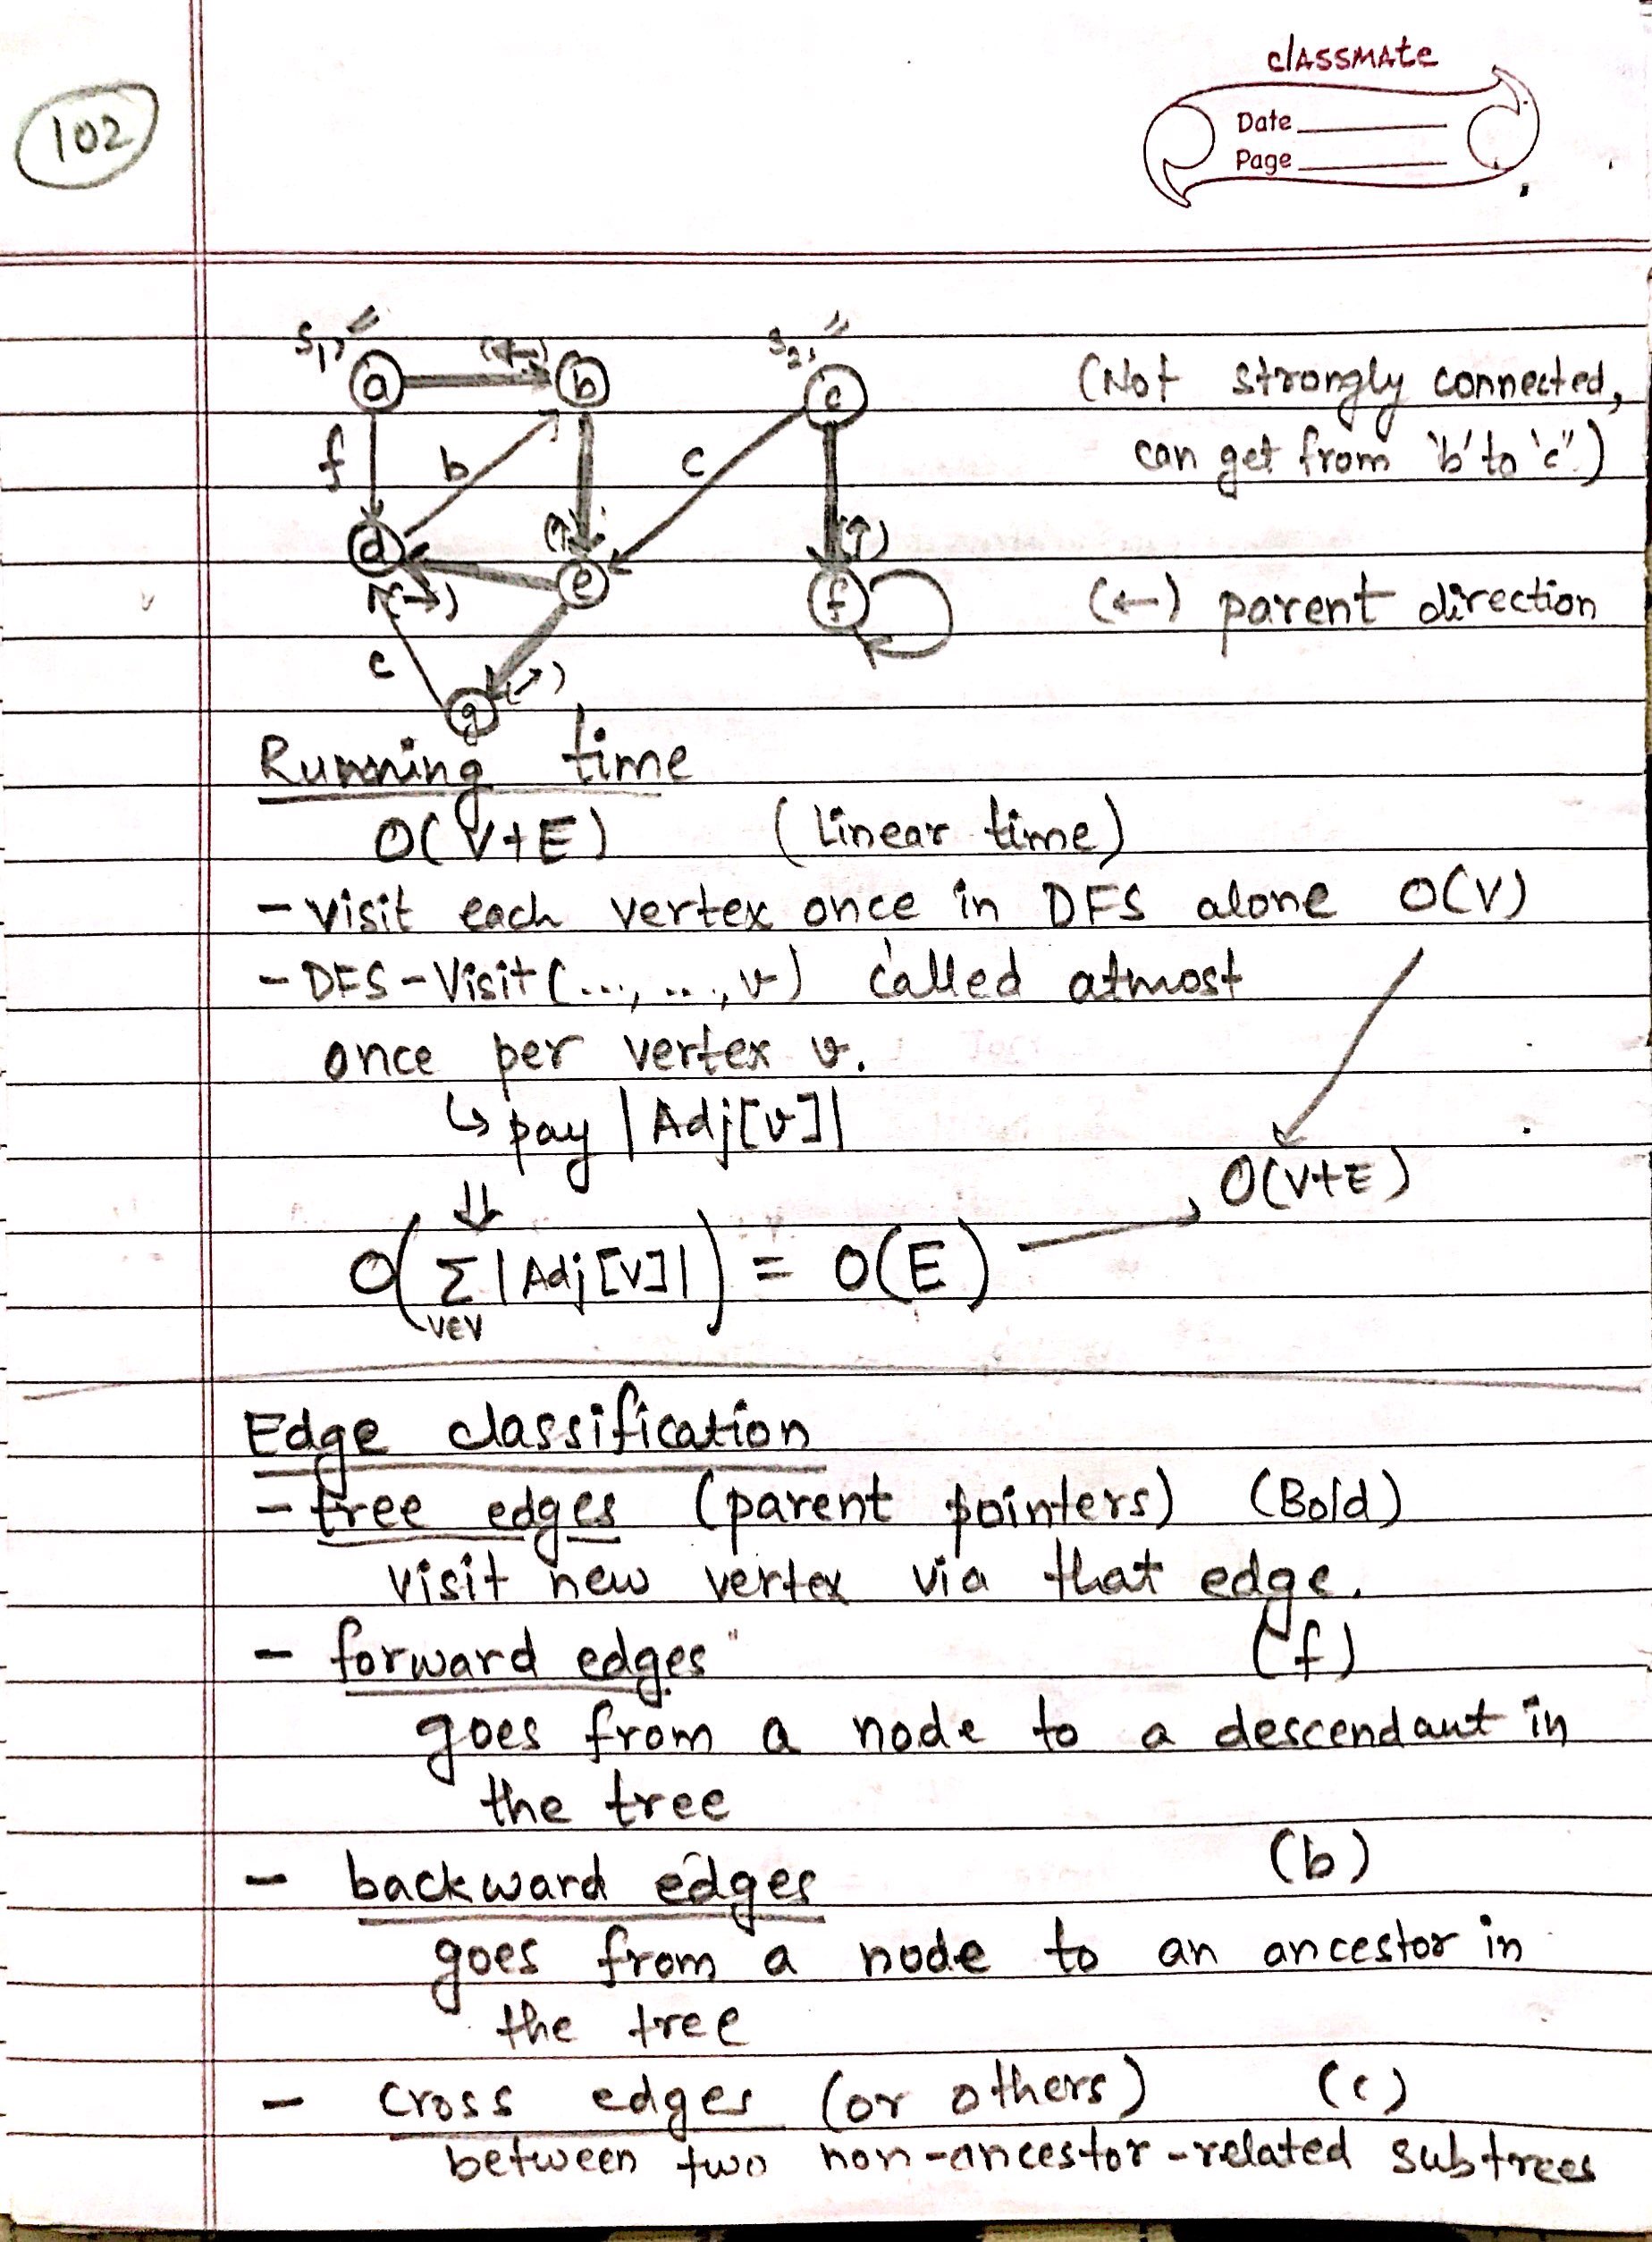 classmate
Date
Page
102
S₁,
a
(←)
b
S₂,
c
(Not strongly connected,
can get from 'b' to 'c'')
f
b
c
d
(↑)
e
(↑)
f
(→)
(←) parent direction
c
(↗)
g
Running time
O(V+E) (Linear time)
- visit each vertex once in DFS alone O(V)
- DFS-Visit(..., .., v) called atmost
once per vertex v.
↳ pay |Adj[v]|
⇓
O(V+E)
O(Σ |Adj[v]|) = O(E)
v∈V
Edge classification
- tree edges (parent pointers) (Bold)
visit new vertex via that edge.
- forward edges (f)
goes from a node to a descendant in
the tree
- backward edges (b)
goes from a node to an ancestor in
the tree
- cross edges (or others) (c)
between two non-ancestor-related subtrees